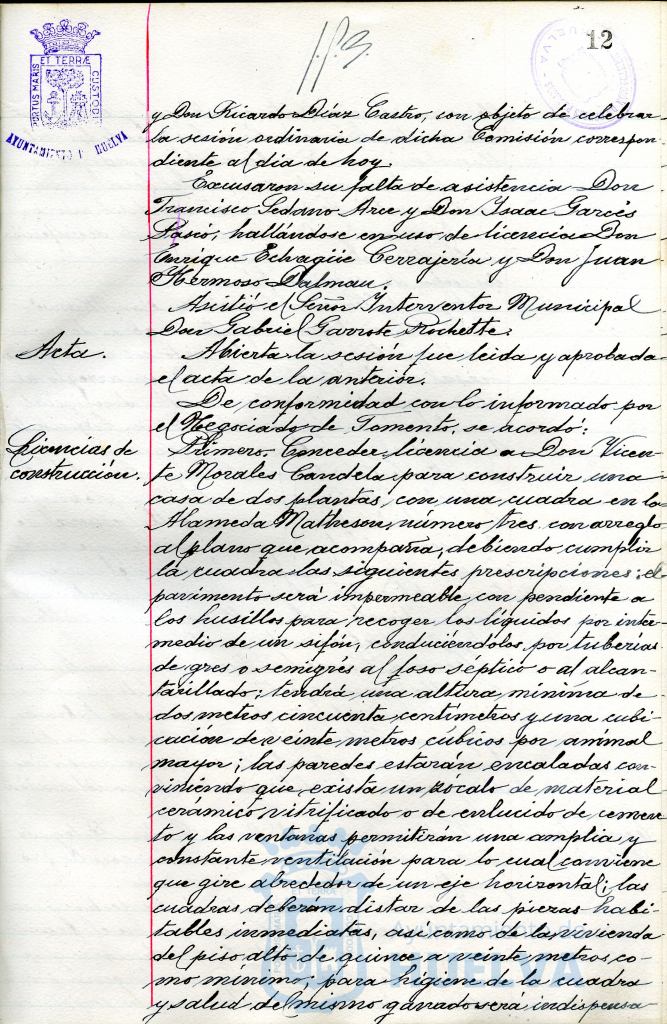 12
PORTUS MARIS
ET TERRÆ
CUSTODIA
AYUNTAMIENTO DE HUELVA
HUELVA
y Don Ricardo Díaz Castro, con objeto de celebrar
la sesión ordinaria de dicha Comisión correspon-
diente al día de hoy.
Excusaron su falta de asistencia Don
Francisco Sedano Arce y Don Isaac Garcés
hallándose en uso de licencia Don
Enrique Echagüe Cerrajería y Don Juan
Hermoso Dalmau.
Asistió el Señor Interventor Municipal
Don Gabriel Garrote Rochette.
Acta.
Abierta la sesión fue leida y aprobada
el acta de la anterior.
De conformidad con lo informado por
el Negociado de Fomento, se acordó:
Licencias de
construcción.
Primero. Conceder licencia a Don Vicen-
te Morales Candela para construir una
casa de dos plantas, con una cuadra en la
Alameda Matheson, número tres con arreglo
al plano que acompaña, debiendo cumplir
la cuadra las siguientes prescripciones: el
pavimento será impermeable con pendiente a
los husillos para recoger los líquidos por inter-
medio de un sifón, conduciéndolos por tuberías
de gres o semigrés al foso séptico o al alcan-
tarillado; tendrá una altura mínima de
dos metros cincuenta centímetros y una cubi-
cación de veinte metros cúbicos por animal
mayor; las paredes estarán encaladas con-
viniendo que exista un zócalo de material
cerámico, vitrificado o de enlucido de cemen-
to y las ventanas permitirán una amplia y
constante ventilación para lo cual conviene
que gire alrededor de un eje horizontal; las
cuadras deberán distar de las piezas habi-
tables inmediatas, así como de la vivienda
del piso alto de quince a veinte metros co-
mo mínimo; para higiene de la cuadra
y salud del mismo ganado será indispensa
Ayuntamiento de
HUELVA